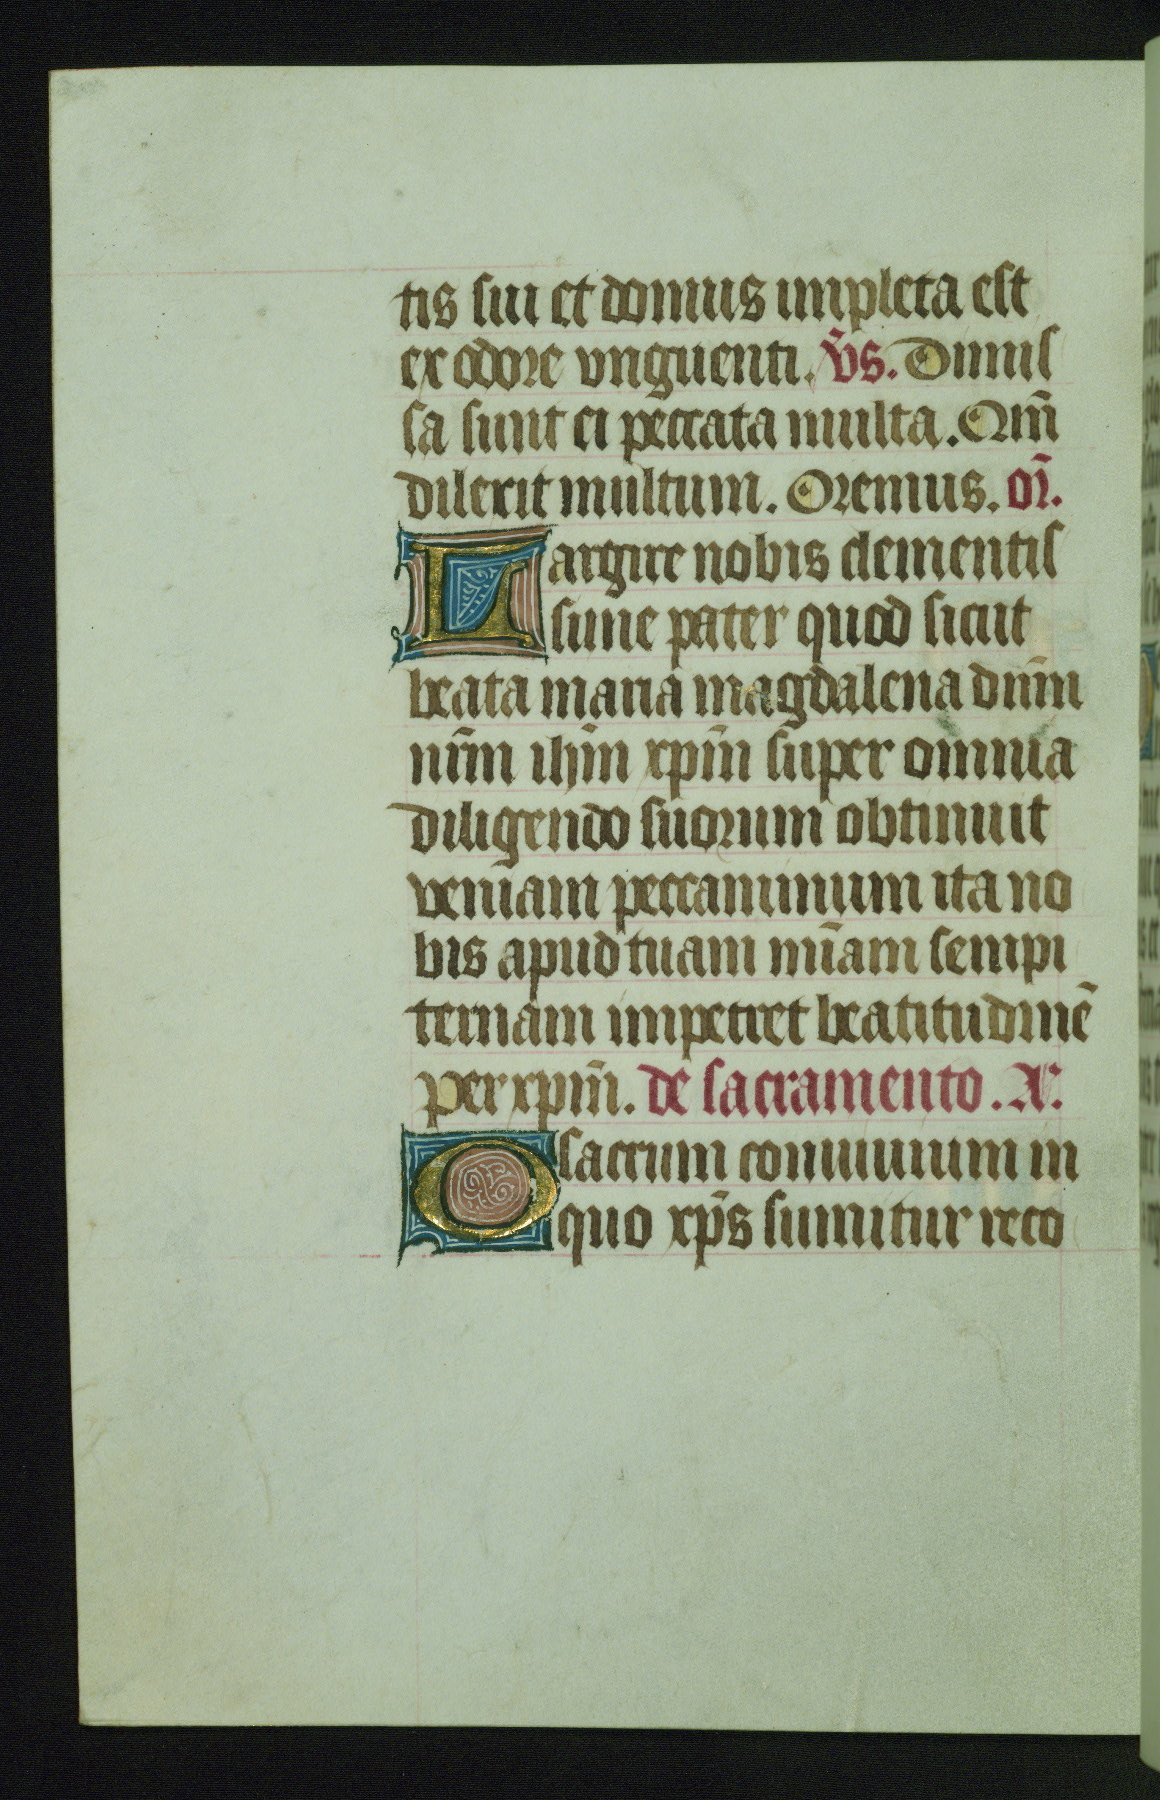 tis sui et domus impleta est
ex odore vnguenti. v̄s. Dimis
sa sunt ei peccata multa. Qm̄
dilexit multum. Oremus. or̄.
Largire nobis clementis
sime pater quod sicut
beata maria magdalena dn̄m
nr̄m ih̄m xp̄m super omnia
diligendo suorum obtinuit
veniam peccaminum ita no
bis apud tuam mīam sempi
ternam impetret beatitudinē
per xp̄m. de sacramento. A.
O sacrum conuiuium in
quo xp̄s sumitur reco